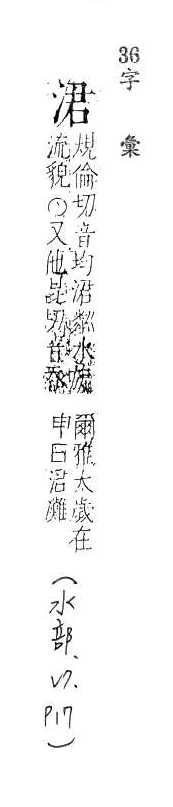 36 字彙
涒
規倫切音均涒粼水旋
流貌○又他昆切音吞
爾雅太歲在
申曰涒灘
(水部.V7.P17)